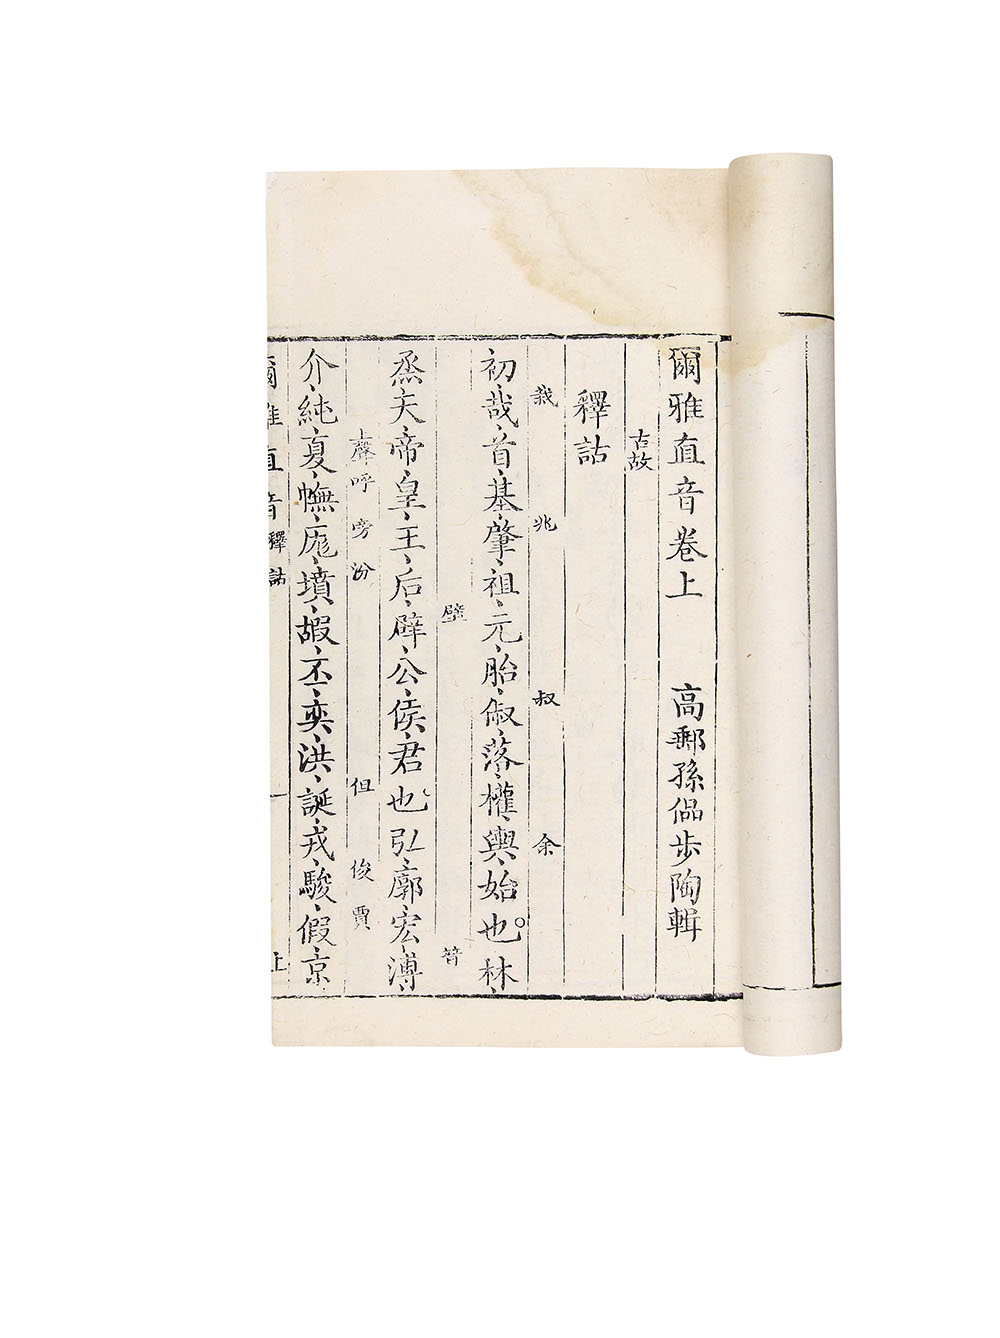 爾雅直音卷上 高郵孫偘步陶輯
古故
釋詁
栽 兆 叔 余
初、哉、首、基、肇、祖、元、胎、俶、落、權、輿、始也。林、
壁 普
烝、天、帝、皇、王、后、辟、公、侯、君也。弘、廓、宏、溥、
上聲呼 旁 汾 但 俊 賈
介、純、夏、幠、厖、墳、嘏、丕、奕、洪、誕、戎、駿、假、京、
爾雅直音 釋詁 上